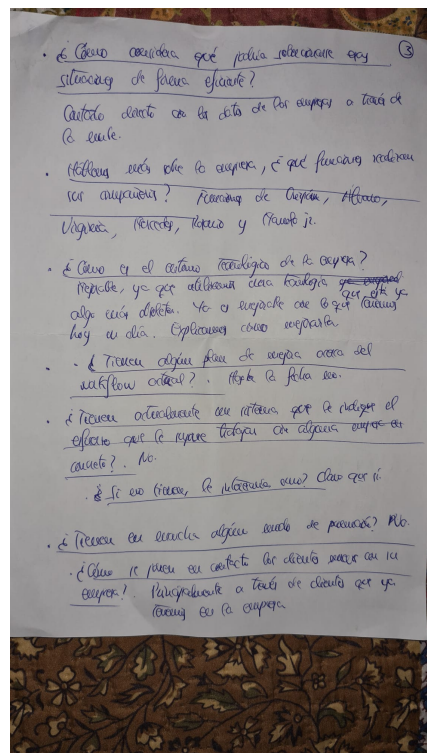 ③
· ¿Cómo considera qué podría solucionarse esas
situaciones de forma eficiente?
Contacto directo con los datos de las empresas a través de
la nube.
· Háblenos más sobre la empresa, ¿qué funciones realizan
sus compañeros? Funciones de
Mercedes, Rosario y Manolo jr.
· ¿Cómo es el entorno tecnológico de la empresa?
Mejorable, ya que utilizamos una tecnología que está ya
algo más obsoleta. Ya es mejorable con lo que tenemos
hoy en día. Explicamos como mejorarla
· ¿Tienen algún plan de mejora acerca del
workflow actual? . Hasta la fecha no.
· ¿Tienen actualmente un sistema que le indique el
esfuerzo que le supone trabajar con alguna empresa en
concreto? . No.
· ¿Si no tienen, le interesaría uno? Claro que sí.
· ¿Tienen en marcha algún modo de promoción? No.
· ¿Cómo se ponen en contacto los clientes nuevos con su
empresa? . Principalmente a través de clientes que ya
tenemos en la empresa